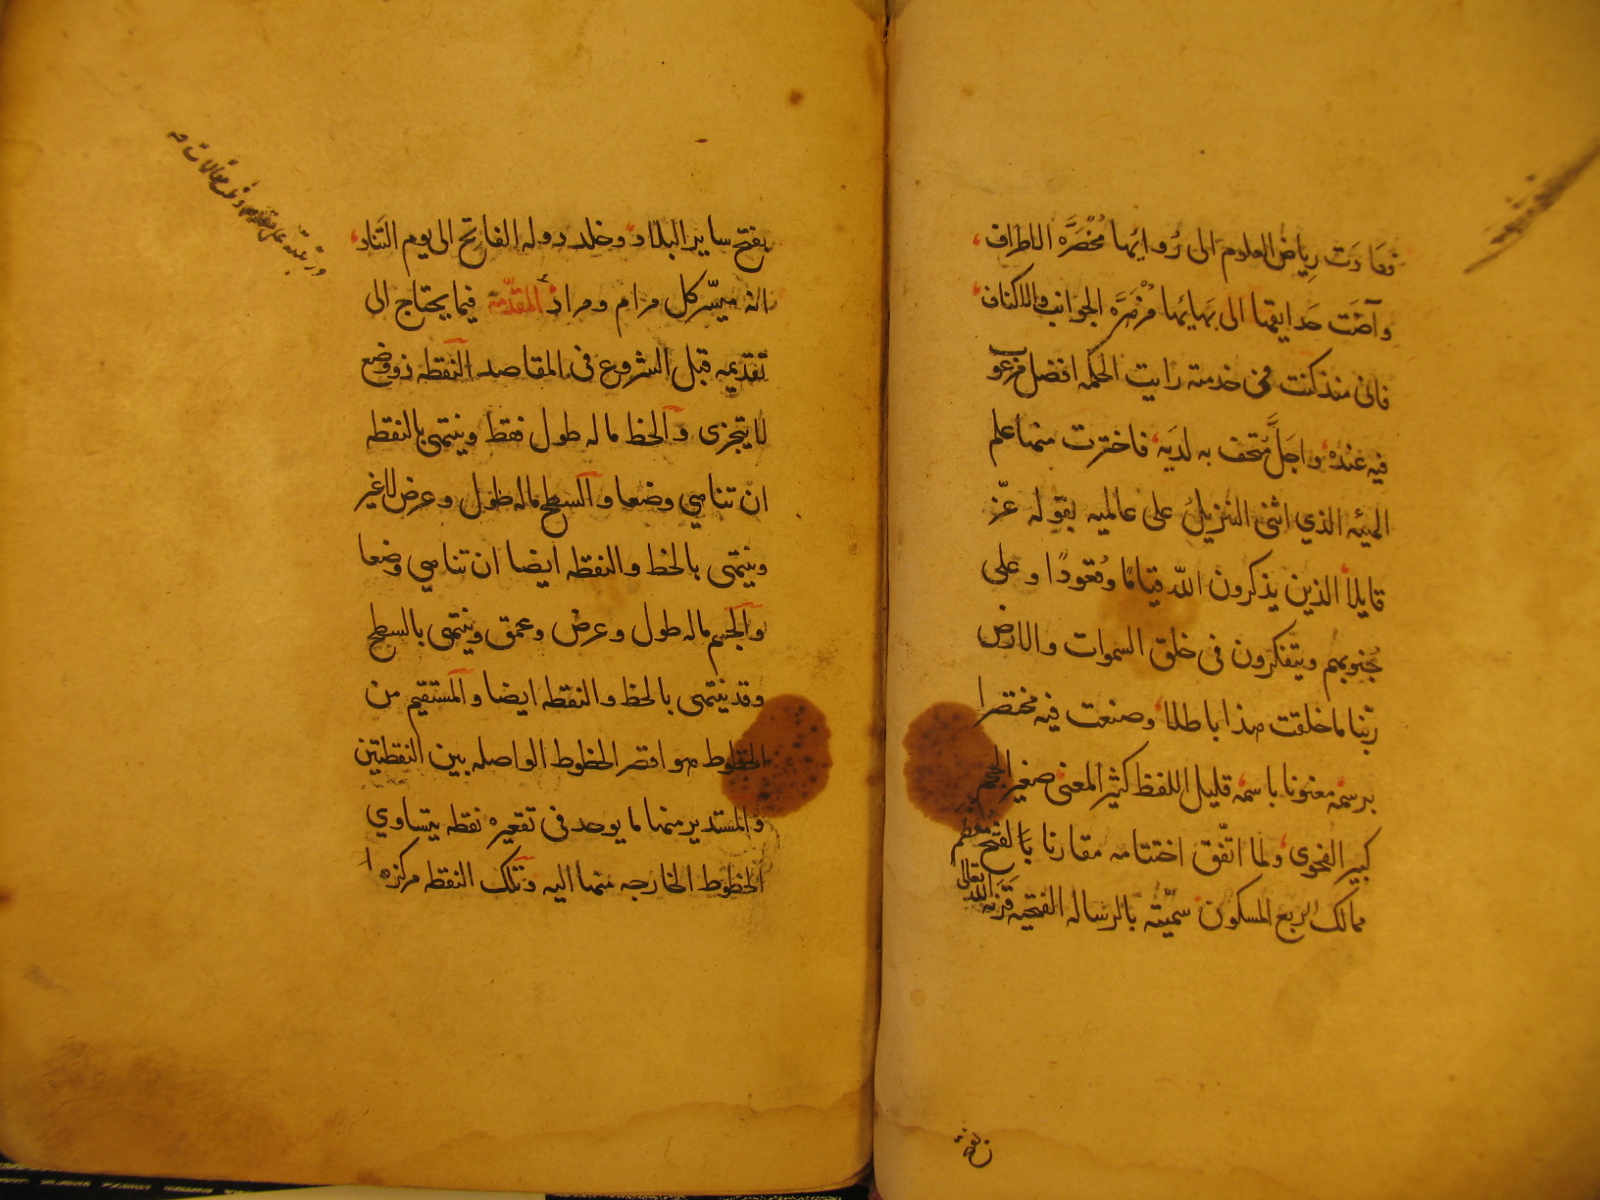 فعادت رياض العلوم الى رُوائها مُخضرَّه الاطراف
وآضت حدايقها الى بَهائها مُزهرَّه الجوانب والاكناف
فانى منذ كنت فى خدمته رايت الحكمه افضل مرغوب
فيه عنده واجَلَّ مُتحف به لديه فاخترت منها علم
الهيئه الذي اثنى التنزيلُ على عالميه بقوله عزّ
قايلا الذين يذكرون اللّه قيامًا وقُعودًا وعلى
جُنوبهم ويتفكرون فى خلق السموات والارض
ربّنا ما خلقت هذا باطلا وصنعت فيه مختصرا
برسمه معنونا باسمه قليل اللفظ كثير المعنى صغير الحجم
كبير الفحوى ولما اتّفق اختتامه مقارنا بالفتح
ممالك الربع المسكون سمّيته بالرساله الفتحيه قرَنه اللّه تعالى
بفتح
بفتح ساير البلاد وخلد دوله الفاتح الى يوم التَناد
انه ميسّر كل مرام ومراد المقدّمة فيما يحتاج الى
تقديمه قبل الشروع فى المقاصد النقطه ذو وضع
لا يتجزى والخط ما له طول فقط وينتهى بالنقطه
ان تناهي وضعا والسطح ما له طول وعرض لا غير
وينتهى بالخط والنقطه ايضا ان تناهي وضعا
والجسم ما له طول وعرض وعمق وينتهى بالسطح
وقد ينتهى بالخط والنقطه ايضا والمستقيم من
الخطوط هو اقصر الخطوط الواصله بين النقطتين
والمستدير منها ما يوجد فى تقعيره نقطه يتساوي
الخطوط الخارجه منها اليه وتلك النقطه مركزه